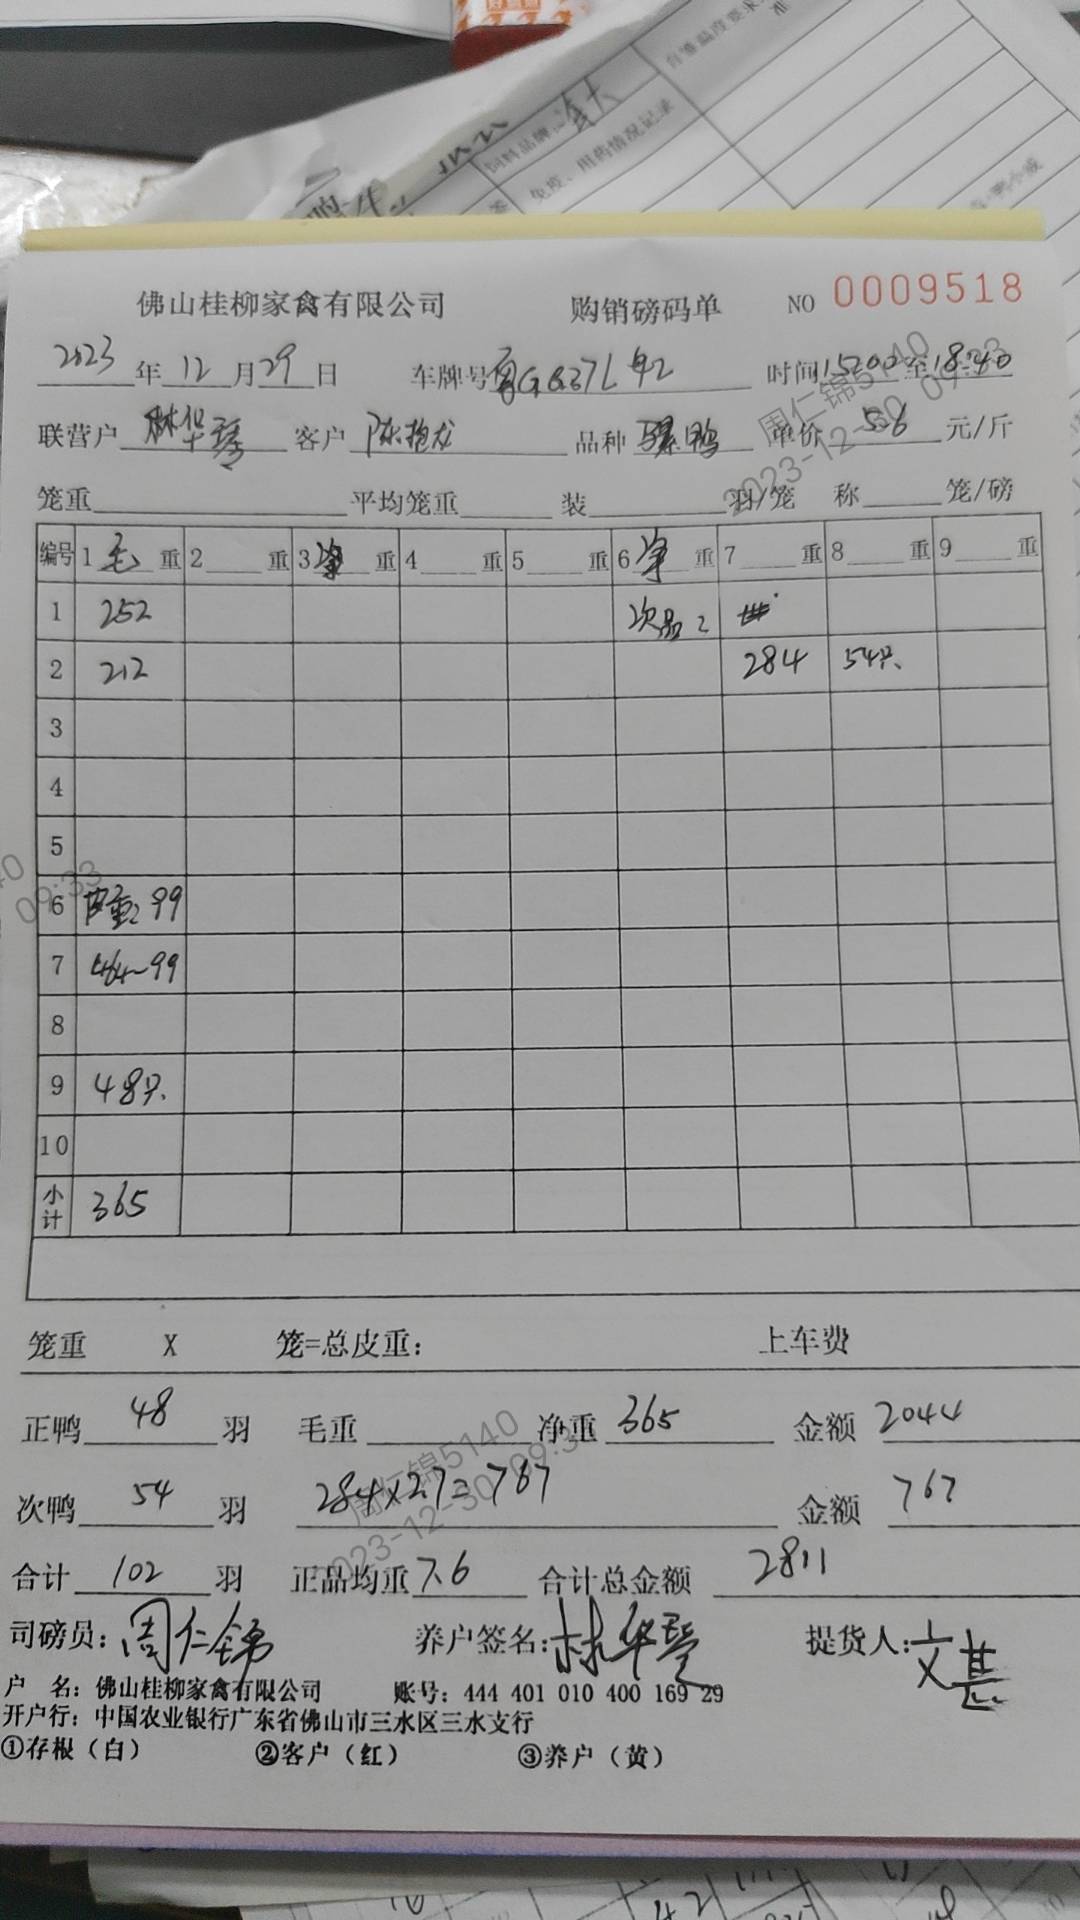 饲料品牌: 海大
免疫、用药情况记录
佛山桂柳家禽有限公司 购销磅码单 NO 0009518
2023年12月29日 车牌号 时间15:00至18:40
联营户 林华琴 客户 陈艳龙 品种 骡鸭 单价 5.6 元/斤
笼重 平均笼重 装 羽/笼 称 笼/磅
编号 1毛重 2 重 3净重 4 重 5 重 6净重 7 重 8 重 9 重
1 252 次品:
2 212 284 54只.
3
4
5
6 皮重: 99
7 464-99
8
9 48只.
10
小计 365
笼重 X 笼=总皮重: 上车费
正鸭 48 羽 毛重 净重 365 金额 2044
次鸭 54 羽 284×2.7=767 金额 767
合计 102 羽 正品均重 7.6 合计总金额 2811
司磅员: 周仁锦 养户签名: 林华琴 提货人: 文甚
户 名: 佛山桂柳家禽有限公司 账号: 444 401 010 400 169 29
开户行: 中国农业银行广东省佛山市三水区三水支行
①存根（白） ②客户（红） ③养户（黄）
周仁锦5140
2023-12-30 09:33